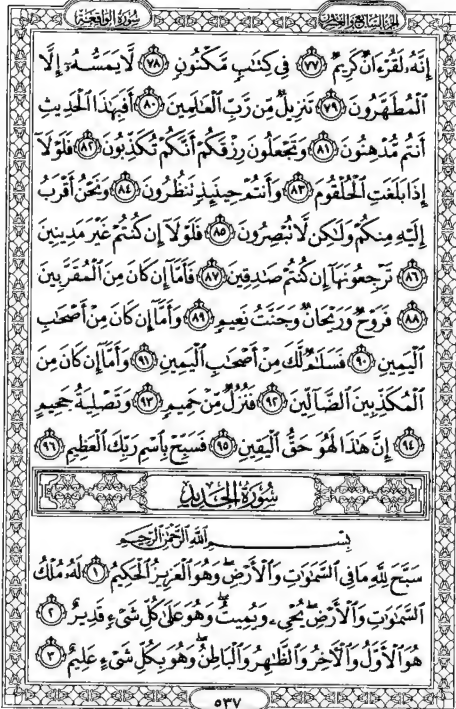 سُورَةُ الوَاقِعَةِ
الجُزْءُ السَّابِعُ وَالعِشْرُونَ
إِنَّهُۥ لَقُرْءَانٌ كَرِيمٌ ۝٧٧ فِى كِتَٰبٍ مَّكْنُونٍ ۝٧٨ لَّا يَمَسُّهُۥٓ إِلَّا
ٱلْمُطَهَّرُونَ ۝٧٩ تَنزِيلٌ مِّن رَّبِّ ٱلْعَٰلَمِينَ ۝٨٠ أَفَبِهَٰذَا ٱلْحَدِيثِ
أَنتُم مُّدْهِنُونَ ۝٨١ وَتَجْعَلُونَ رِزْقَكُمْ أَنَّكُمْ تُكَذِّبُونَ ۝٨٢ فَلَوْلَآ
إِذَا بَلَغَتِ ٱلْحُلْقُومَ ۝٨٣ وَأَنتُمْ حِينَئِذٍ تَنظُرُونَ ۝٨٤ وَنَحْنُ أَقْرَبُ
إِلَيْهِ مِنكُمْ وَلَٰكِن لَّا تُبْصِرُونَ ۝٨٥ فَلَوْلَآ إِن كُنتُمْ غَيْرَ مَدِينِينَ
۝٨٦ تَرْجِعُونَهَآ إِن كُنتُمْ صَٰدِقِينَ ۝٨٧ فَأَمَّآ إِن كَانَ مِنَ ٱلْمُقَرَّبِينَ
۝٨٨ فَرَوْحٌ وَرَيْحَانٌ وَجَنَّتُ نَعِيمٍ ۝٨٩ وَأَمَّآ إِن كَانَ مِنْ أَصْحَٰبِ
ٱلْيَمِينِ ۝٩٠ فَسَلَٰمٌ لَّكَ مِنْ أَصْحَٰبِ ٱلْيَمِينِ ۝٩١ وَأَمَّآ إِن كَانَ مِنَ
ٱلْمُكَذِّبِينَ ٱلضَّآلِّينَ ۝٩٢ فَنُزُلٌ مِّنْ حَمِيمٍ ۝٩٣ وَتَصْلِيَةُ جَحِيمٍ
۝٩٤ إِنَّ هَٰذَا لَهُوَ حَقُّ ٱلْيَقِينِ ۝٩٥ فَسَبِّحْ بِٱسْمِ رَبِّكَ ٱلْعَظِيمِ ۝٩٦
سُورَةُ الحَدِيدِ
بِسْمِ ٱللَّهِ ٱلرَّحْمَٰنِ ٱلرَّحِيمِ
سَبَّحَ لِلَّهِ مَا فِى ٱلسَّمَٰوَٰتِ وَٱلْأَرْضِ ۖ وَهُوَ ٱلْعَزِيزُ ٱلْحَكِيمُ ۝١ لَهُۥ مُلْكُ
ٱلسَّمَٰوَٰتِ وَٱلْأَرْضِ ۖ يُحْىِۦ وَيُمِيتُ ۖ وَهُوَ عَلَىٰ كُلِّ شَىْءٍ قَدِيرٌ ۝٢
هُوَ ٱلْأَوَّلُ وَٱلْءَاخِرُ وَٱلظَّٰهِرُ وَٱلْبَاطِنُ ۖ وَهُوَ بِكُلِّ شَىْءٍ عَلِيمٌ ۝٣
٥٣٧